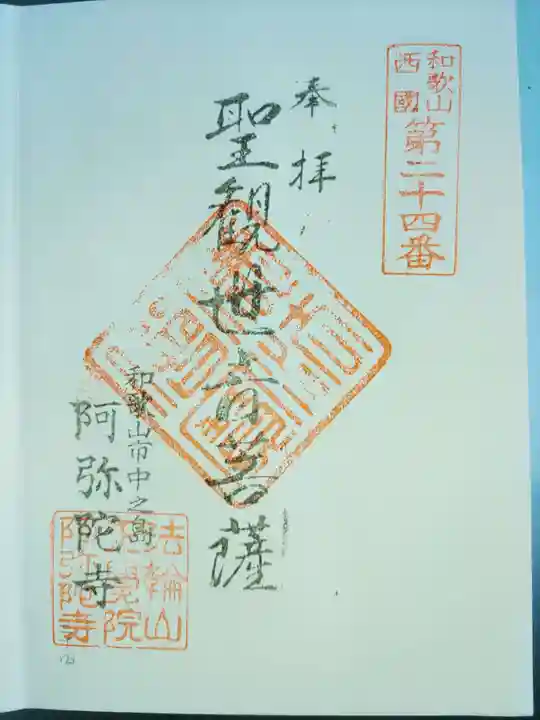 和歌山
西國
第二十四番
奉拝
聖観世音菩薩
和歌山市中之島
阿弥陀寺
法輪山
正覺院
阿弥陀寺